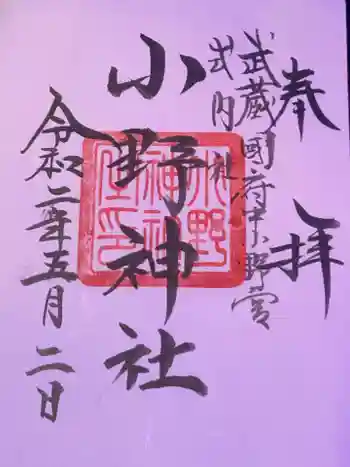 奉拝
武蔵國府中小野宮
式内社
小野神社
令和二年五月二日